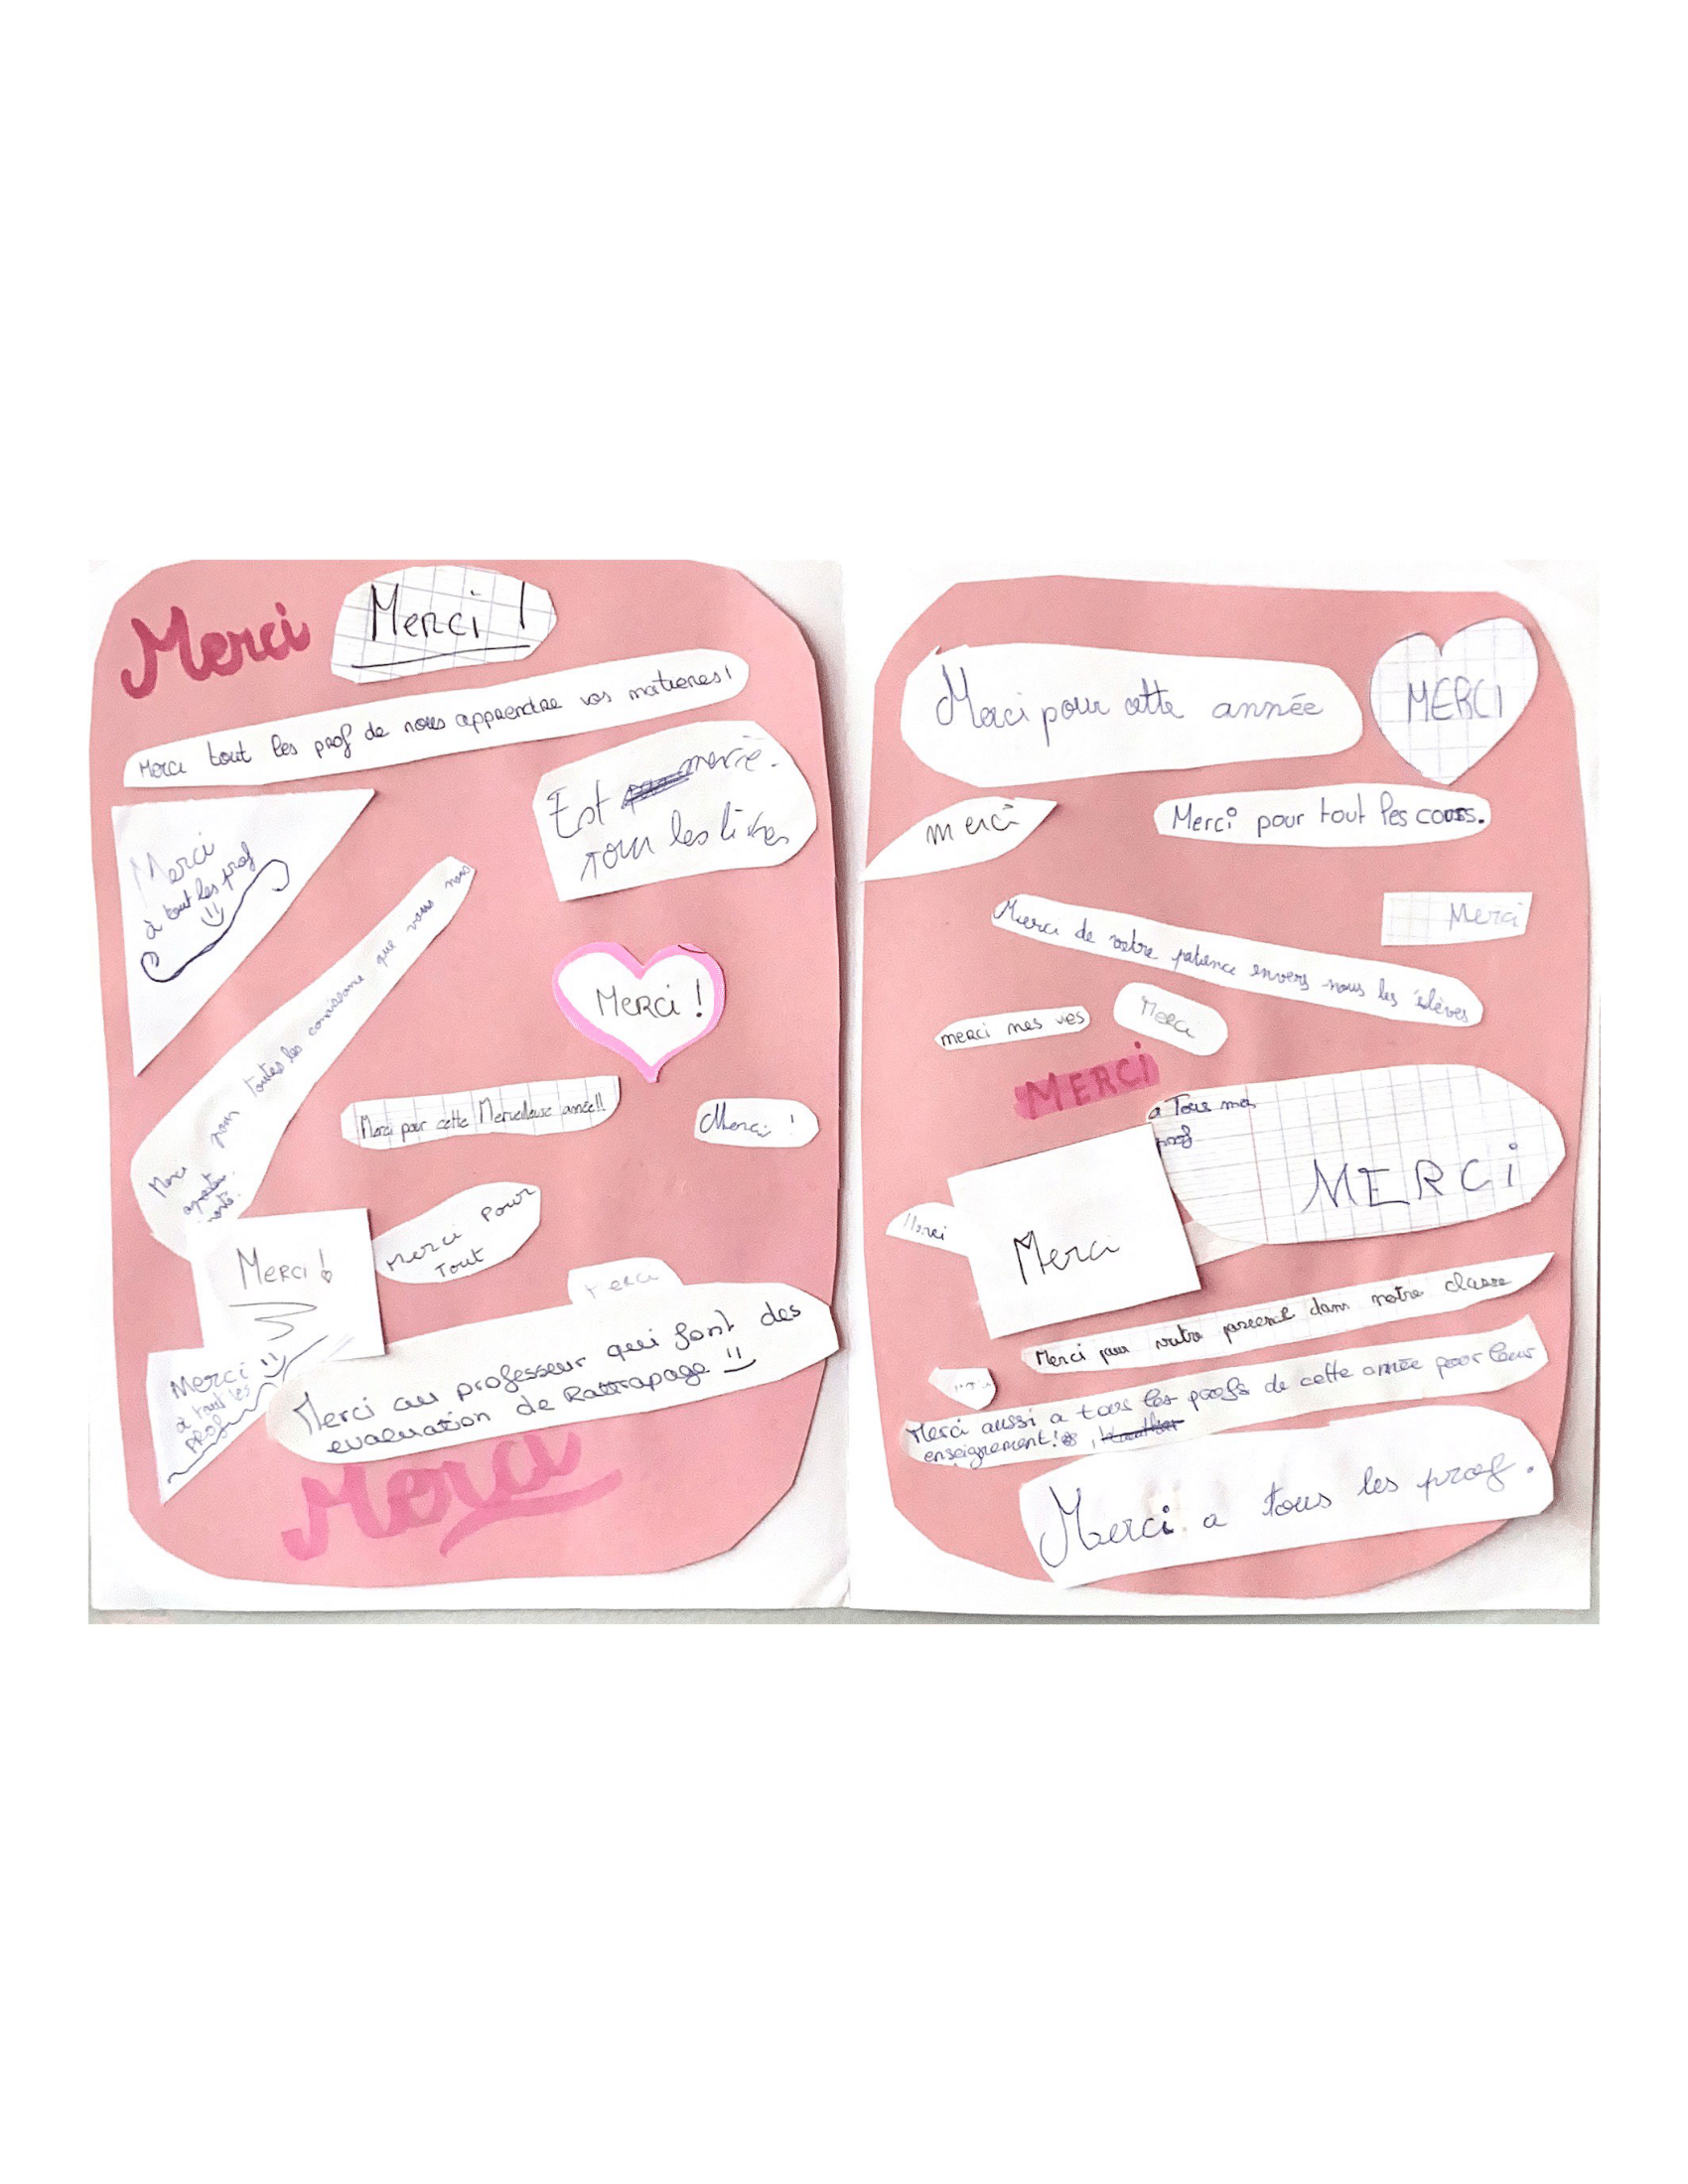 Merci
Merci !
Merci tout les prof de nous apprendre vos matieres !
Est merie.
les livres
Merci
à tout les prof
Merci pour toutes les connaissance que vous nous
Merci !
Merci pour cette Merveilleuse année!!
Merci !
Merci !
Merci Pour
Tout
Merci
Merci
à tout les
prof
Merci au professeur qui font des
evaluation de Rattrapage
Merci
Merci pour cette année
MERCI
merci
Merci pour tout les cours.
Merci
Merci de votre patience envers nous les élèves
merci mes ves
Merci
MERCI
a Tous mes
prof
MERCI
Merci
Merci
Merci pour votre dans notre classe
Merci aussi a tous les profs de cette année pour leur
enseignement!
Merci a tous les prof.